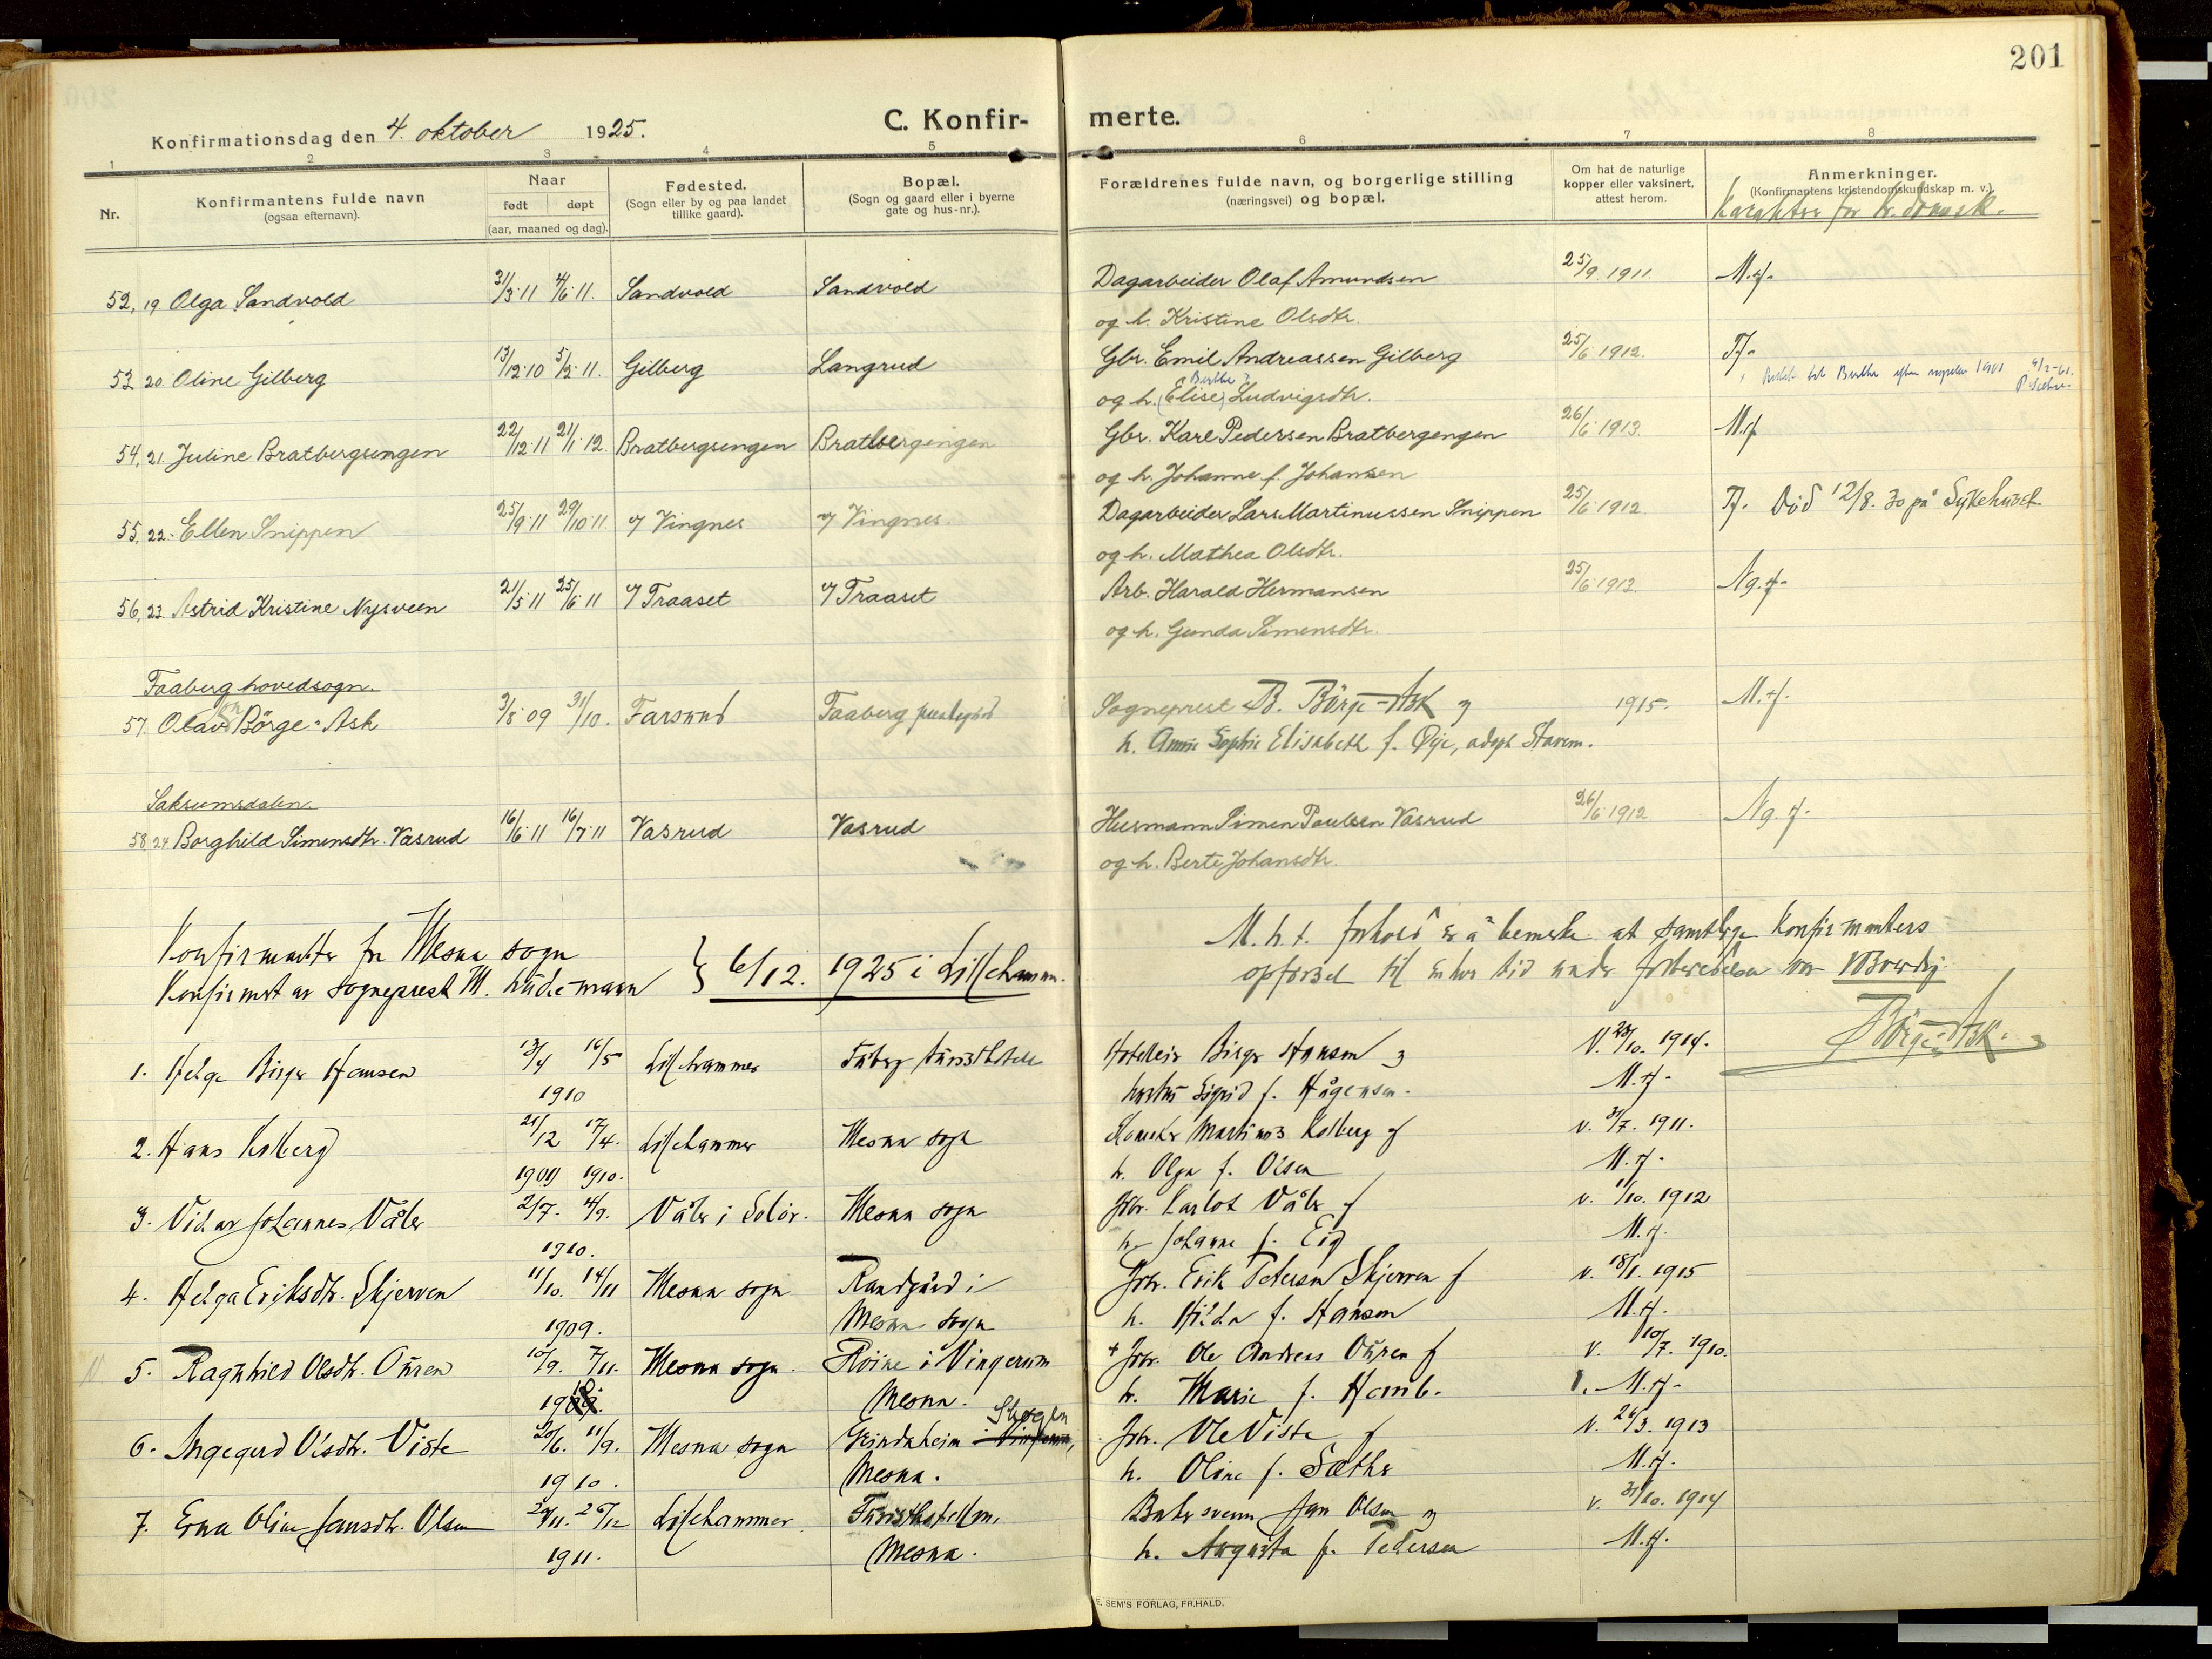 201
Konfirmationsdag den 4. oktober 1925.
C. Konfirmerte.
1 2 3 4 5 6 7 8
Nr.
Konfirmantens fulde navn
(ogsaa efternavn).
Naar
født døpt
(aar, maaned og dag).
Fødested.
(Sogn eller by og paa landet
tillike gaard).
Bopæl.
(Sogn og gaard eller i byerne
gate og hus-nr.).
Forældrenes fulde navn, og borgerlige stilling
(næringsvei) og bopæl.
Om hat de naturlige
kopper eller vaksinert,
attest herom.
Anmerkninger.
(Konfirmantens kristendomskundskap m. v.).
Karakter for kr.domsk.
52, 19 Olga Sandvold 31/3 11 4/6 11. Sandvold Sandvold Dagarbeider Olaf Amundsen 25/9 1911. M.tf.
og h. Kristine Olsdtr.
53 20. Oline Gilberg 13/12 10 5/2 11. Gilberg Langrud Gbr. Emil Andreassen Gilberg 25/6 1912. Tf.
Berthe
og h. (Elise) Ludvigsdtr.
54, 21. Juline Bratbergsengen 22/12 11 21/1 12. Bratbergsengen Bratbergengen Gbr. Karl Pedersen Bratbergengen 26/6 1913. M.tf
og h. Johanne f. Johansen
55, 22. Ellen Snippen 25/9 11 29/10 11 v/ Vingnes v/ Vingnes. Dagarbeider Lars Martinussen Snippen 25/6 1912 Tf. Död 12/8. 30 på Sykehuset
og h. Mathea Olsdtr.
56, 23. Astrid Kristine Nysveen 21/5 11 25/6 11 v/ Traaset v/ Traaset Arb. Harald Hermansen 25/6 1912. Ng.tf.
og h. Gunda Simensdtr.
Faaberg hovedsogn.
57. Olav Börge-Ask 3/8 09 31/10. Farsund Faaberg prestegård Sogneprest B. Börge-Ask og 1915. M.tf.
h. Annie Sophie Elisabeth f. Øye, adopt Stavem.
Saksumsdalen.
58 24 Borghild Simensdtr. Vasrud 16/6 11 16/7 11 Vasrud Vasrud Husmann Simen Paulsen Vasrud 26/6 1912 Ng. tf.
og h. Berte Johansdtr.
Konfirmanter fra Mesna sogn
Konfirmert av sogneprest M. Lüdemann } 6/12. 1925 i Lillehammer.
M.h.t. forhold er å bemerke at samtlige konfirmanters
opförsel til enhver tid under forberedelsen var
Börge-Ask.
1. Helge Birger Hansen 13/4 16/5 Lillehammer Fåberg turisthotell Hotelleier Birger Hansen og V. 23/10. 1914.
1910 hustru Sigrid f. Hågensen. M.tf.
2. Hans Kolberg 21/12 17/4. Lillehammer Mesna sogn Martinus Kolberg og v. 31/7. 1911.
1909 1910. h. Olga f. Olsen M.tf.
3. Vidar Johannes Våler 2/7. 4/9. Våler i Solör. Mesna sogn Gbr. Karlot Våler og v. 1/10. 1912
1910. h. Johanne f. Eid M.tf.
4. Helga Eriksdtr. Skjerven 11/10. 14/11 Mesna sogn Randgård i Gbr. Erik Petersen Skjerven og v. 18/1. 1915
1909. Mesna sogn h. Hilda f. Hansen M.tf.
5. Ragnhild Olsdtr. Ouren 10/9. 7/11. Mesna sogn. Röine i Vingerom + Gbr. Ole Andreas Ouren og v. 10/7. 1910.
1910. Mesna. h. Marie f. Homb. M.tf.
Skogen
6. Ingegerd Olsdtr. Viste 20/6. 11/9. Mesna sogn Grindheim i Vingerom, Gbr. Ole Viste og v. 26/3. 1913
1910. Mesna. h. Oline f. Sæther M.tf.
7. Erna Oline Jansdtr. Olsen 20/11. 26/12 Lillehammer Turisthotellene Bakersvenn Jan Olsen og v. 31/10. 1914
1911. Mesna. h. Augusta f. Pedersen M.tf.
E. SEM'S FORLAG, FR.HALD.